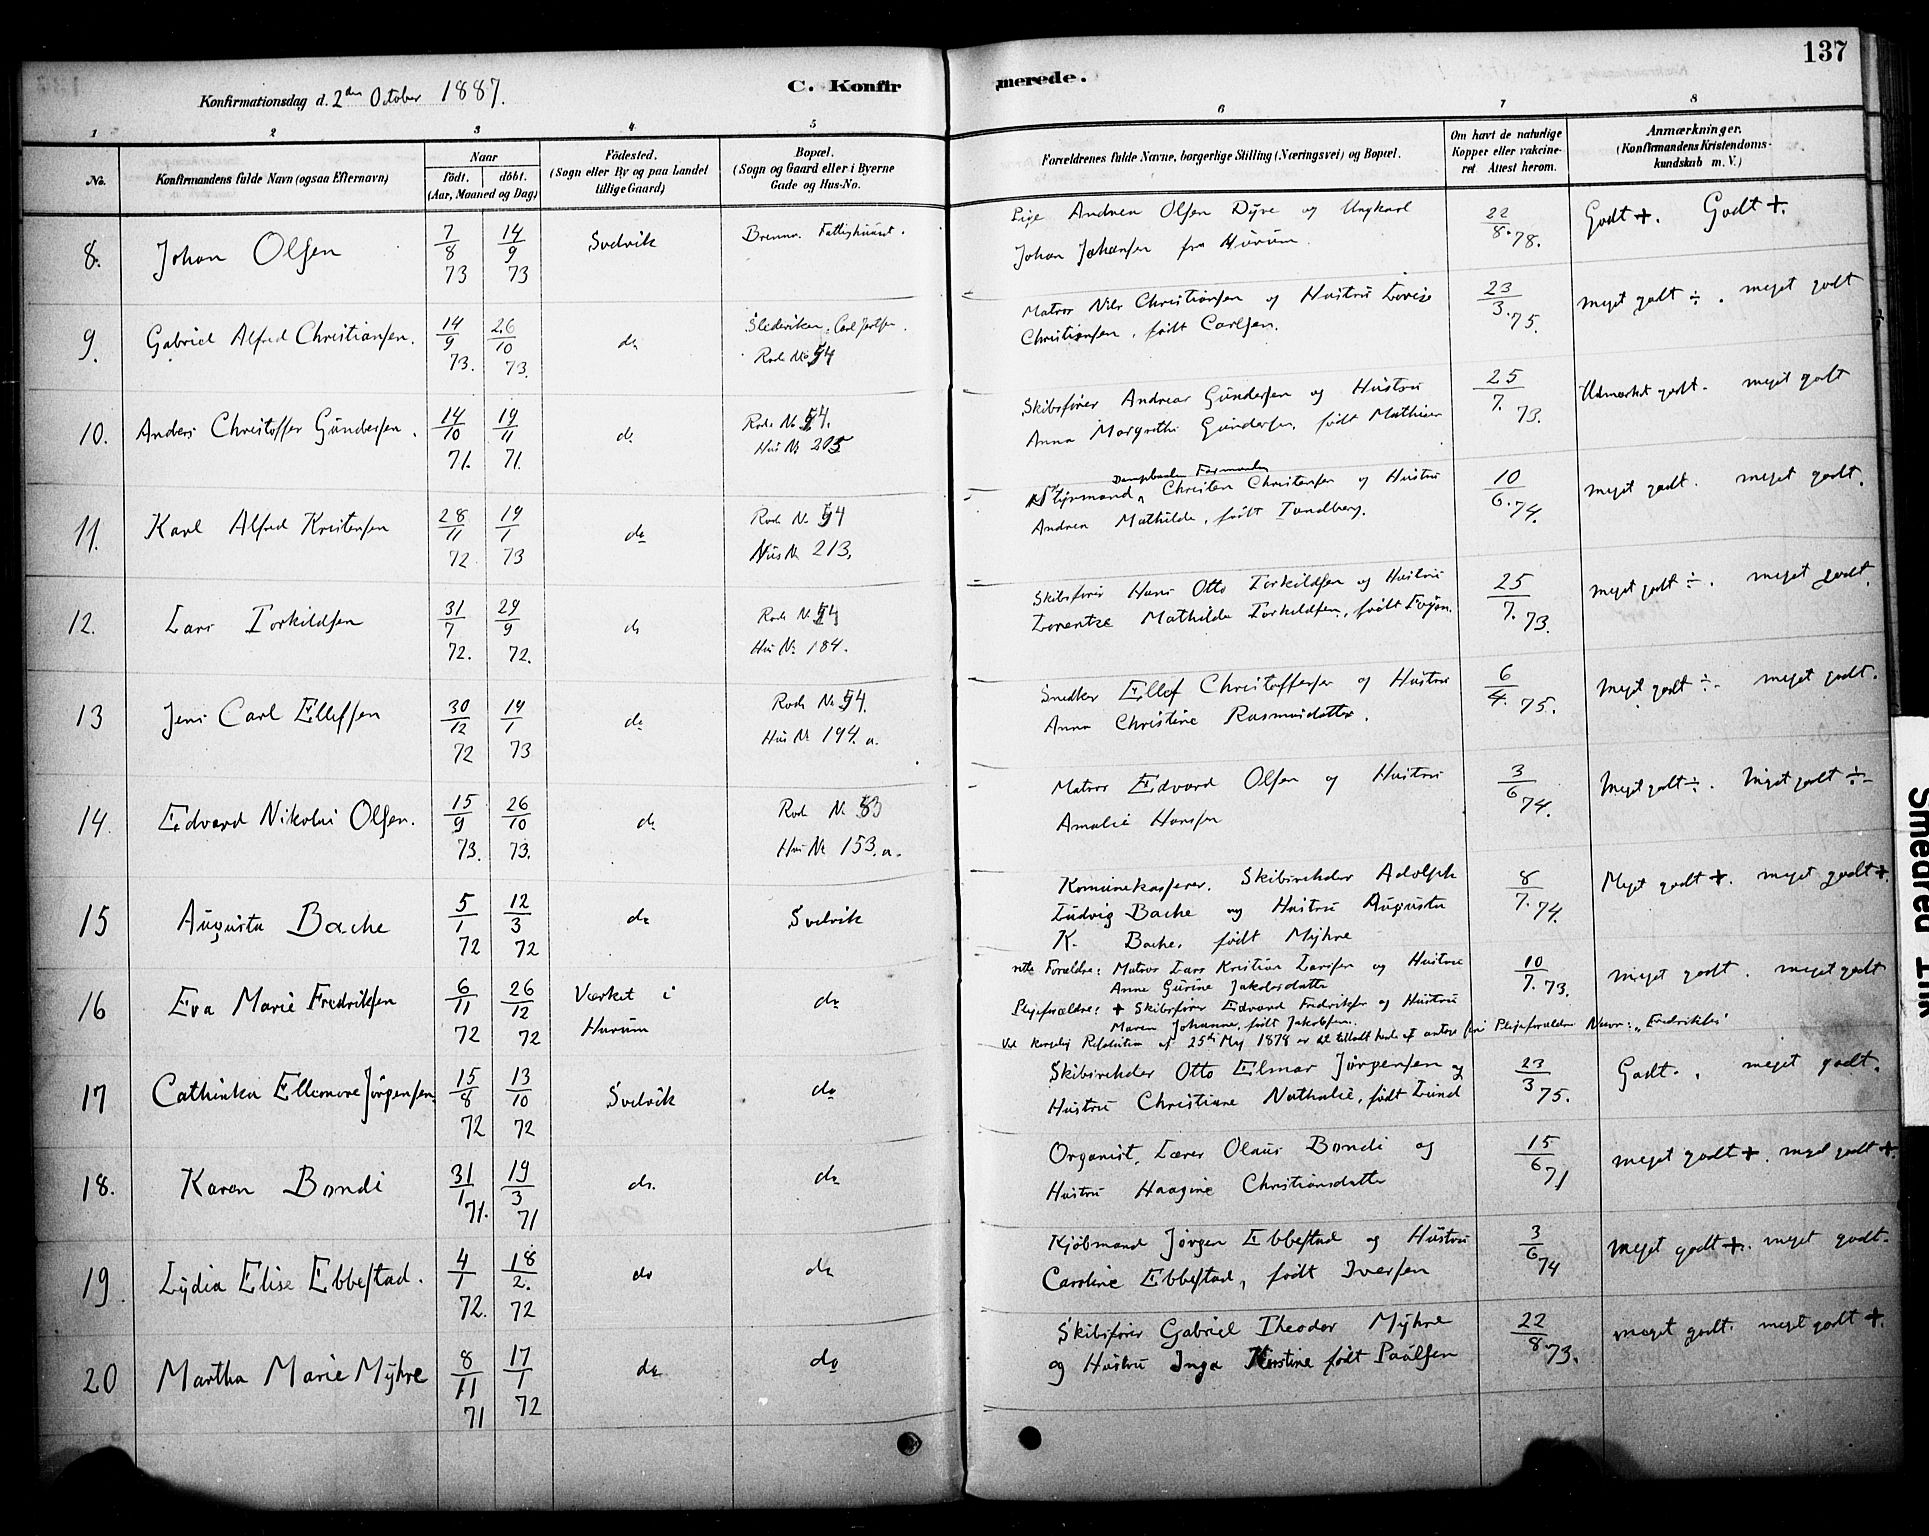 137
Konfirmationsdag d. 2den October 1887.
C. Konfirmerede.
1 2 3 4 5 6 7 8
No.
Konfirmandens fulde Navn (ogsaa Efternavn)
Naar
födt. döbt.
(Aar, Maaned og Dag)
Födested.
(Sogn eller By og paa Landet
tillige Gaard)
Bopæl.
(Sogn og Gaard eller i Byerne
Gade og Hus-No.
Forældrenes fulde Navne, borgerlige Stilling (Næringsvei) og Bopæl.
Om havt de naturlige
Kopper eller vakcine-
ret Attest herom.
Anmærkninger.
(Konfirmandens Kristendoms-
kundskab m. V.)
8. Johan Olsen 7/8 73 14/9 73 Svelvik Brenna. Fattighuset.
Pige Andrea Olsen Dyve og Ungkarl
Johan Johansen fra Hurum. 22/8.78. Godt +. Godt +.
9. Gabriel Alfred Christiansen. 14/9 73. 26/10 73. do Carl
Rode No 54
Matros Nils Christiansen og Hustru Lovise
Christiansen, født Carlsen. 23/3.75. meget godt ÷. meget godt
10. Anders Christoffer Gundersen. 14/10 71. 19/11 71. do Rode No 54.
Hus No 205
Skibsfører Andreas Gundersen og Hustru
Anna Margrethe Gundersen, født Mathisen 25/7.73. Udmærket godt. meget godt
11. Karl Alfred Kristensen 28/11 72 19/1 73 do Rode No 54
Hus No 213.
Dampbaads Formand
Styrmand Christen Christensen og Hustru
Andrea Mathilde, født Tandberg. 10/6.74. meget godt. meget godt.
12. Lars Torkildsen 31/7 72. 29/9 72. do Rode No 54
Hus No 184.
Skibsfører Hans Otto Torkildsen og Hustru
Lorentze Mathilde Torkildsen, født 25/7.73. meget godt ÷. meget godt.
13 Jens Carl Ellefsen 30/12 72 19/1 73 do Rode No 54.
Hus No 194. a.
Snedker Ellef Christoffersen og Hustru
Anna Christine Rasmusdatter. 6/4.75. Meget godt ÷. meget godt.
14. Edvard Nikolai Olsen. 15/9 73. 26/10 73. do Rode No 53
Hus No 153. a.
Matros Edvard Olsen og Hustru
Amalie Hansen 3/6 74. Meget godt ÷. Meget godt ÷
15 Augusta Bache 5/1 72 12/3 72 do Svelvik
Komunekasserer, Skibsrheder Adolph
Ludvig Bache og Hustru Augusta
K. Bache, født Myhre 8/7.74. Meget godt +. meget godt +.
16 Eva Marie Fredriksen 6/11 72 26/12 72 Værket i
Hurum do
rette Forældre: Matros Lars Kristian Larsen og Hustru
Anne Gurine Jakobsdatter 10/7.73. meget godt. meget godt
Plejeforældre: + Skibsfører Edvard Fredriksen og Hustru
Maren Johanne, født Jakobsen.
Ved kongelig Resolution af 25de Maj 1878 er det tilladt hende at antage sine Plejeforældres Navn: „Fredriksen"
17 Cathinka Ellemore Jørgensen 15/8 72 13/10 72 Svelvik do
Skibsrheder Otto Elmar Jørgensen og
Hustru Christiane Nathalie, født Lund 23/3 75. Godt. meget godt.
18. Karen Bondi 31/1 71. 19/3 71 do. do
Organist, Lærer Olaus Bondi og
Hustru Haagine Christiansdatter 15/6 71 meget godt +. meget godt +.
19 Lydia Elise Ebbestad. 4/1 72. 18/2. 72 do do
Kjøbmand Jørgen Ebbestad og Hustru
Caroline Ebbestad, født Iversen 3/6 74 meget godt +. meget godt.
20 Martha Marie Myhre 8/11 71 17/1 72 do do
Skibsfører Gabriel Theodor Myhre
og Hustru Inga Kirstine født Paulsen 22/8.73. meget godt. meget godt +.
Smeared Ink